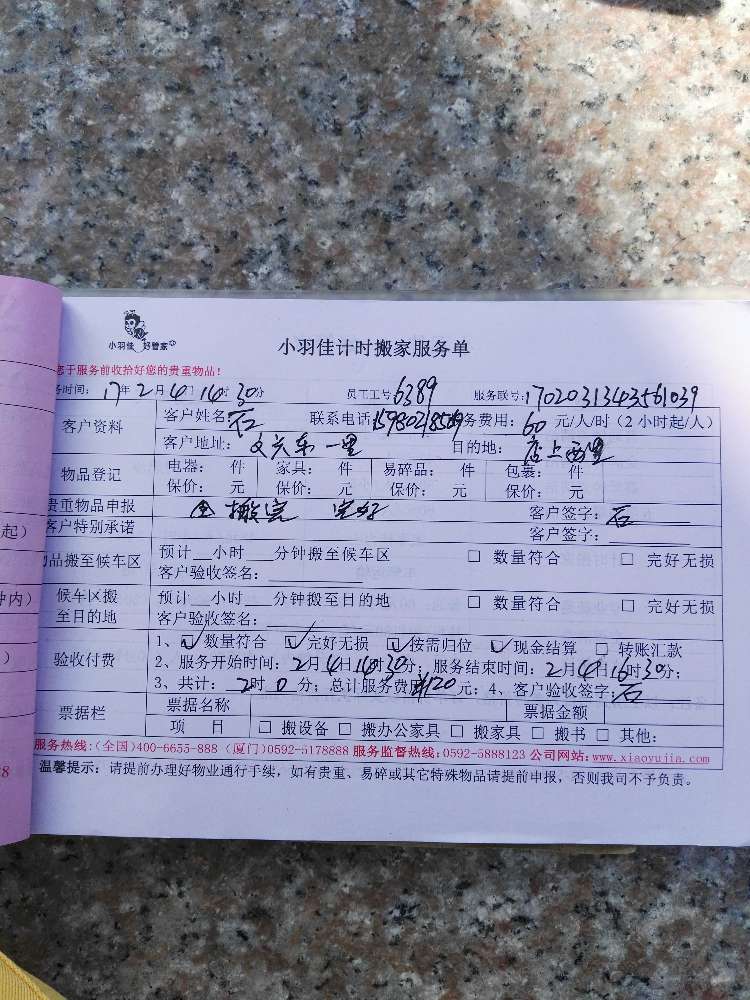 小羽佳 好管家
小羽佳计时搬家服务单
您于服务前收拾好您的贵重物品！
务时间：17年2月4日14时30分 员工工号6389 服务联号：1702031343561039
客户资料 客户姓名 石 联系电话： 务费用：60 元/人/时（2 小时起/人）
客户地址：文六东一里 目的地：店上西里
物品登记 电器： 件 家具： 件 易碎品： 件 包裹： 件
保价： 元 保价： 元 保价： 元 保价： 元
贵重物品申报 搬完 完好 客户签字：石
客户特别承诺 客户签字：
物品搬至候车区 预计__小时__分钟搬至候车区 □ 数量符合 □ 完好无损
客户验收签名：
候车区搬至目的地 预计__小时__分钟搬至目的地 □ 数量符合 □ 完好无损
客户验收签名：
验收付费 1、☑数量符合 ☑完好无损 ☑按需归位 ☑现金结算 □ 转账汇款
2、服务开始时间：2月4日14时30分；服务结束时间：2月4日16时30分；
3、共计：2时0分；总计服务费用120元；4、客户验收签字：石
票据栏 票据名称 票据金额
项 目 □ 搬设备 □ 搬办公家具 □ 搬家具 □ 搬书 □ 其他：
服务热线：(全国)400-6655-888 (厦门)0592-5178888 服务监督热线：0592-5888123 公司网站：www.xiaoyujia.com
温馨提示：请提前办理好物业通行手续，如有贵重、易碎或其它特殊物品请提前申报，否则我司不予负责。
起）
钟内）
）
8